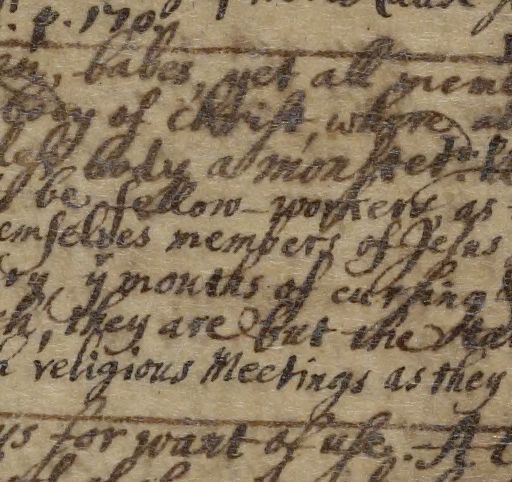 . p. 170
babes, yet all mem
body of Christ, where a
body a monster
be fellow-workers, as
emselves members of Jesus
ry, yr mouths of cursing
h, they are but the
religious Meetings as they
ys for want of use. A